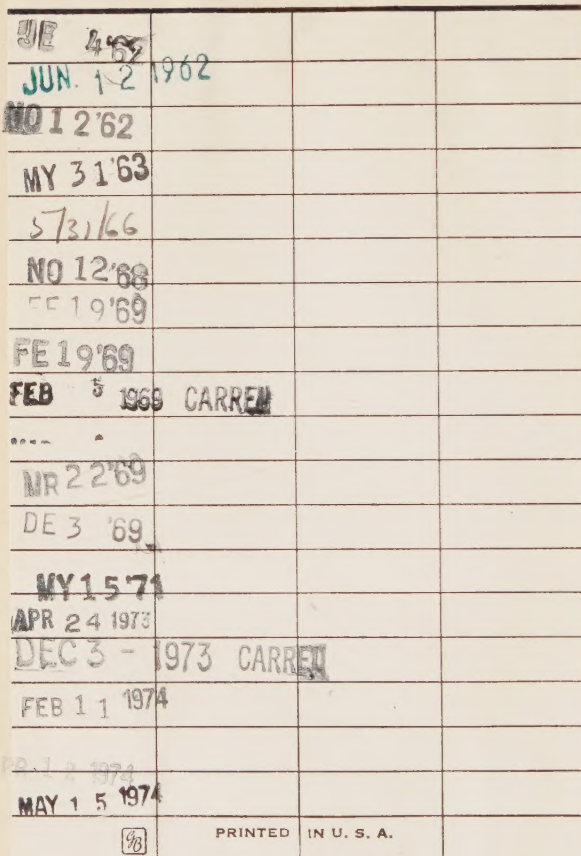 4 '62
JUN. 12 1962
NO 12 '62
MY 31 '63
5/31/66
NO 12 '68
FE 19 '69
FE 19 '69
FEB 5 1969 CARREL
MR 22 '69
DE 3 '69
MY 15 '71
APR 24 1973
DEC 3 - 1973 CARREL
FEB 11 1974
1974
MAY 15 1974
GB PRINTED IN U. S. A.